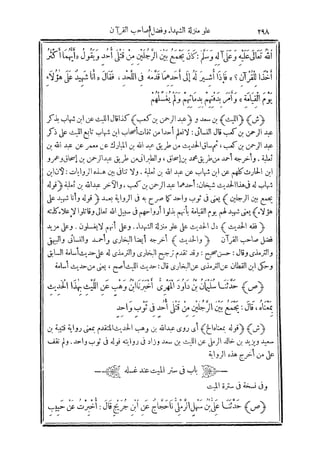 ٢٩٨ علو منزلة الشهداء وفضل صاحب القرآن
الله تعالى عليه وعلى آله وسلم: كان يجمع بين الرجلين من قتلى أحد ويقول «أيهما أكثر
أخذا للقرآن؟» فإذا أشير له إلى أحدهما قدمه في اللحد، فقال «أنا شهيد على هؤلاء
يوم القيامة» وأمر بدفنهم بدمائهم ولم يغسلهم
(ش) (الليث) بن سعد و (عبد الرحمن بن كعب) كذا قال الليث عن ابن شهاب بذكر
عبد الرحمن بن كعب. قال النسائي: لا أعلم أحدا من ثقات أصحاب ابن شهاب تابع الليث على ذكر
عبد الرحمن بن كعب، ثم ساق الحديث من طريق عبد الله بن المبارك عن معمر عن عبد الله بن
ثعلبة. وأخرجه أحمد من طريق محمد بن إسحاق، والطبراني من طريق عبد الرحمن بن إسحاق وعمرو
ابن الحارث كلهم عن ابن شهاب عن عبد الله بن ثعلبة. ولا تنافى بين هذه الروايات: لأن ابن
شهاب له في هذا الحديث شيخان: أحدهما عبد الرحمن بن كعب. والآخر عبد الله بن ثعلبة (قوله
يجمع بين الرجلين) يعنى في ثوب واحد كما صرح به في الرواية الآتية (قوله وأنا شهيد على
هؤلاء) يعنى شهيد لهم يوم القيامة بأنهم بذلوا أرواحهم في سبيل الله تعالى وقاتلوا لإعلاء كلمته
(فقه الحديث) دل الحديث على علو منزلة الشهداء. وعلى أنهم لا يغسلون. وعلى مزيد
فضل صاحب القرآن (والحديث) أخرجه أيضا البخاري وأحمد والنسائي والبيهقي
والترمذي وقال: حسن صحيح: وقد تقدم ترجيح البخاري والترمذي له على حديث أسامة السابق
وحكى ابن القطان عن الترمذي عن البخاري قال: حديث الليث أصح، يعنى من حديث أسامة
(ص) حدثنا سليمان بن داود المهرى أخبرنا ابن وهب عن الليث بهذا الحديث
بمعناه، قال: يجمع بين الرجلين من قتلى أحد في ثوب واحد
(ش) (قوله بمعناه الخ) أى روى عبد الله بن وهب الحديث المتقدم بمعنى رواية قتيبة بن
سعيد ويزيد بن خالد الرملي عن الليث بن سعد وزاد في روايته قوله في ثوب واحد. ولم نقف
على من أخرج هذه الرواية
باب في ستر الميت عند غسله
وفي نسخة في سترة الميت
(ص) حدثنا على بن سهل الرملي نا حجاج عن ابن جريج قال: أخبرت عن حبيب